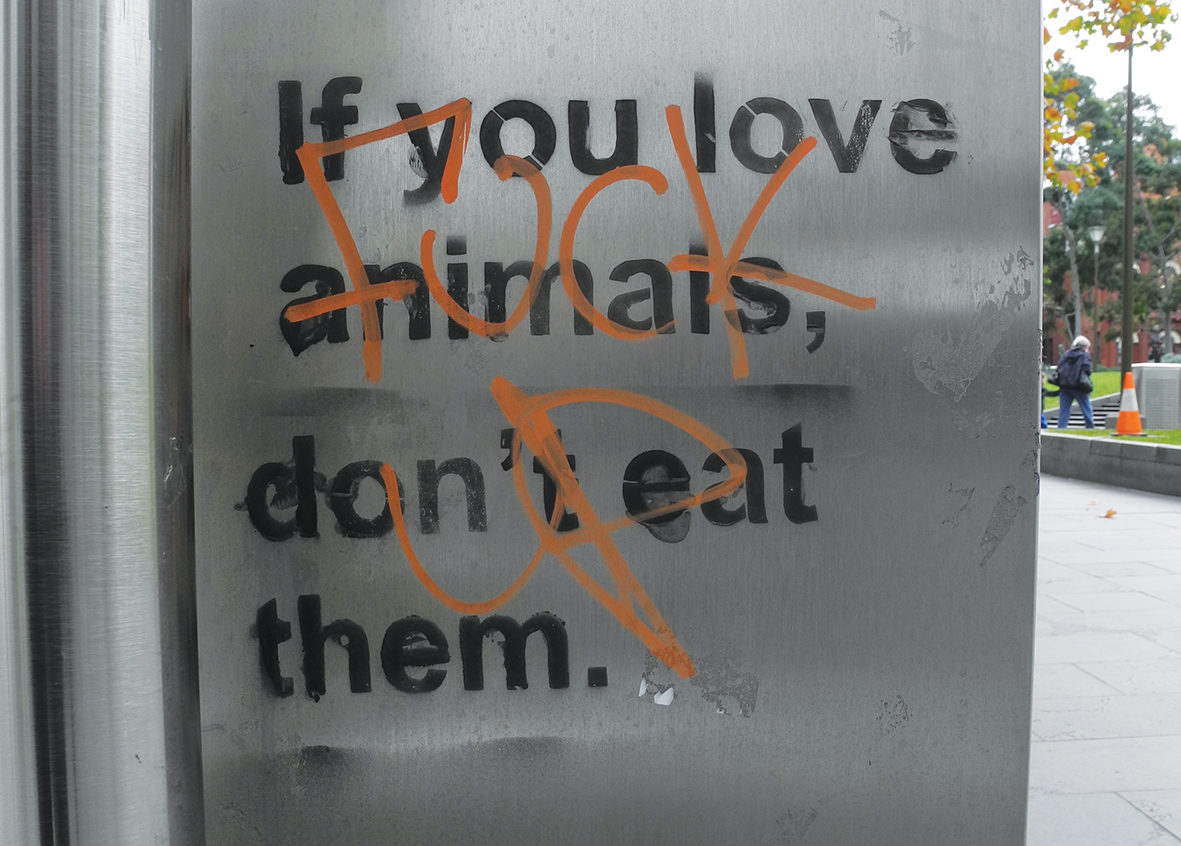 If you love
animals,
don't eat
them.
FUCK
UP